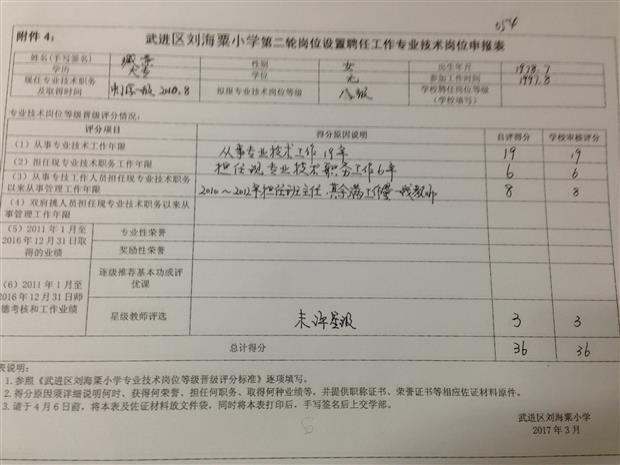 附件4：
武进区刘海粟小学第二轮岗位设置聘任工作专业技术岗位申报表
姓名(手写签名) 性别 女 出生年月 1978.7
学历 大专 学位 无 参加工作时间 1997.8
现任专业技术职务及取得时间 2010.8 拟报专业技术岗位等级 八级 学校聘任岗位等级(学校填写)
专业技术岗位等级晋级评分情况：
评分项目 得分原因说明 自评得分 学校审核评分
(1) 从事专业技术工作年限 从事专业技术工作19年 19 19
(2) 担任现专业技术职务工作年限 担任现专业技术职务工作6年 6 6
(3) 专技工作人员担任现专业技术职务以来从事管理工作年限 2010～2012年担任班主任.其余满工作量一线教师 8 8
(4) 双肩挑人员担任现专业技术职务以来从事管理工作年限
(5) 2011年1月至2016年12月31日取得的业绩 专业性荣誉
奖励性荣誉
(6) 2011年1月至2016年12月31日师德考核和工作业绩 逐级推荐基本功或评优课
星级教师评选 未评星级 3 3
总计得分 36 36
表说明：
1.参照《武进区刘海粟小学专业技术岗位等级晋级评分标准》逐项填写。
2.得分原因须详细说明何时、获得何荣誉、担任何职务、取得何种业绩等，并提供职称证书、荣誉证书等相应佐证材料原件。
3.请于4月6日前，将本表及佐证材料放文件袋，同时将本表打印后，手写签名后上交学部。
武进区刘海粟小学
2017年3月